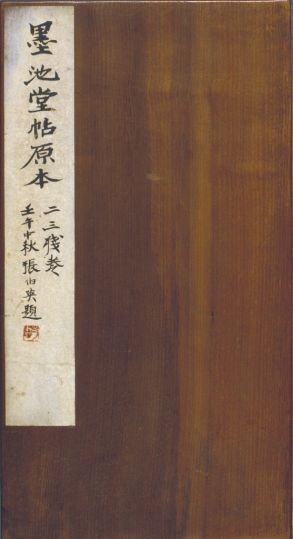 墨池堂帖原本
二三殘卷
壬午中秋張伯英題